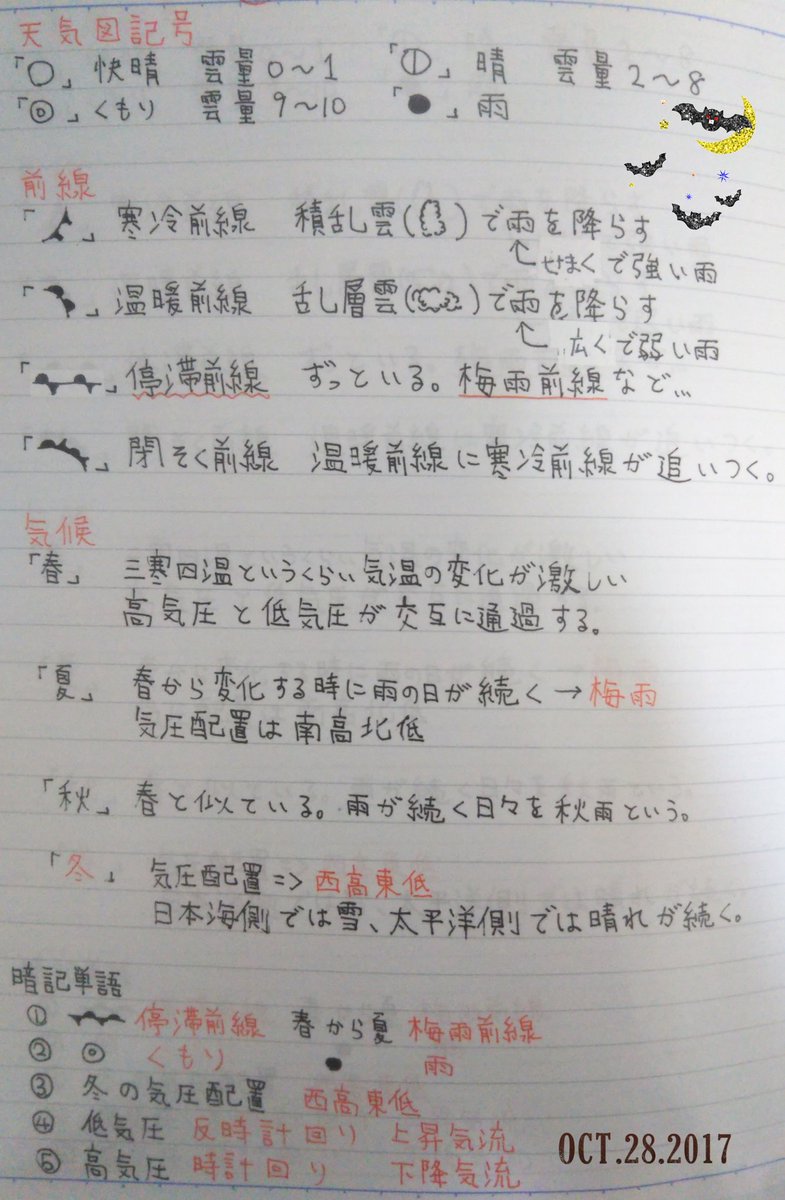 天気図記号
「○」快晴 雲量0〜1 「⦶」晴 雲量2〜8
「◎」くもり 雲量9〜10 「●」雨
前線
「 」寒冷前線 積乱雲( )で雨を降らす
↖せまくで強い雨
「 」温暖前線 乱層雲( )で雨を降らす
↖広くで弱い雨
「 」停滞前線 ずっといる。梅雨前線など…
「 」閉そく前線 温暖前線に寒冷前線が追いつく。
気候
「春」 三寒四温というくらい気温の変化が激しい
高気圧と低気圧が交互に通過する。
「夏」 春から変化する時に雨の日が続く→梅雨
気圧配置は南高北低
「秋」 春と似ている。雨が続く日々を秋雨という。
「冬」 気圧配置=>西高東低
日本海側では雪、太平洋側では晴れが続く。
暗記単語
① 停滞前線 春から夏 梅雨前線
② ◎ くもり ● 雨
③ 冬の気圧配置 西高東低
④ 低気圧 反時計回り 上昇気流
⑤ 高気圧 時計回り 下降気流
OCT.28.2017